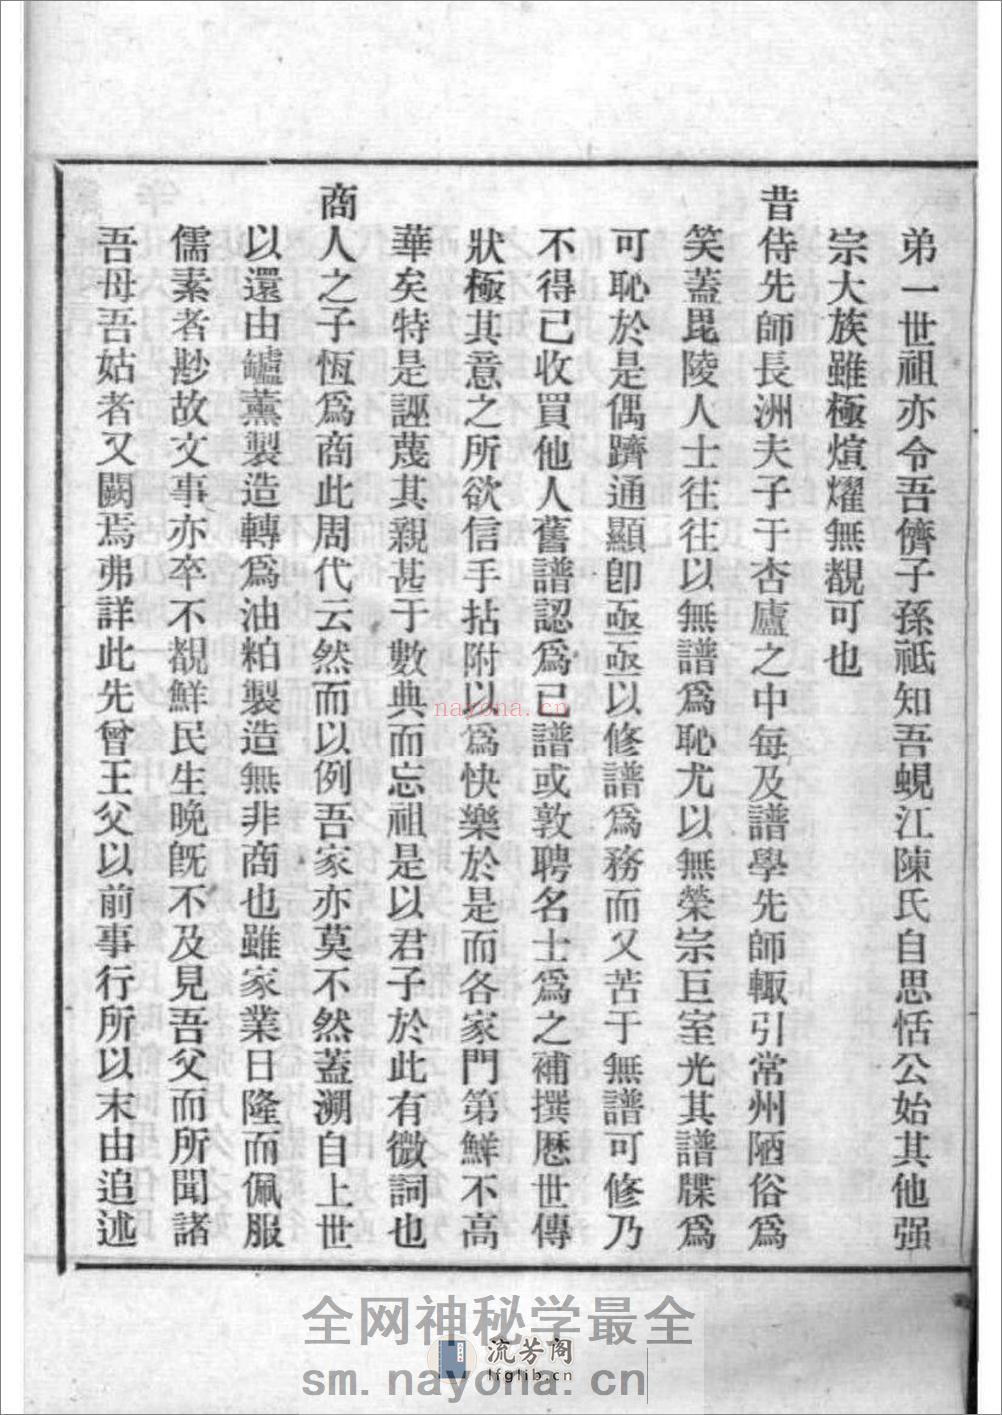 弟一世祖亦令吾儕子孫祗知吾蜆江陳氏自思恬公始其他强
宗大族雖極煊燿無覩可也
昔侍先師長洲夫子于杏廬之中每及譜學先師輙引常州陋俗爲
笑蓋毘陵人士往往以無譜爲恥尤以無榮宗巨室光其譜牒爲
可恥於是偶躋通顯卽亟亟以修譜爲務而又苦于無譜可修乃
不得已收買他人舊譜認爲已譜或敦聘名士爲之補撰歷世傳
狀極其意之所欲信手拈附以爲快樂於是而各家門第鮮不高
華矣特是誣蔑其親甚于數典而忘祖是以君子於此有微詞也
商人之子恆爲商此周代云然而以例吾家亦莫不然蓋溯自上世
以還由罏薰製造轉爲油粕製造無非商也雖家業日隆而佩服
儒素者尠故文事亦卒不覩鮮民生晚旣不及見吾父而所聞諸
吾母吾姑者又闕焉弗詳此先曾王父以前事行所以末由追述
nayona.cn
全网神秘学最全
流芳阁
lfglib.cn
sm.nayona.cn